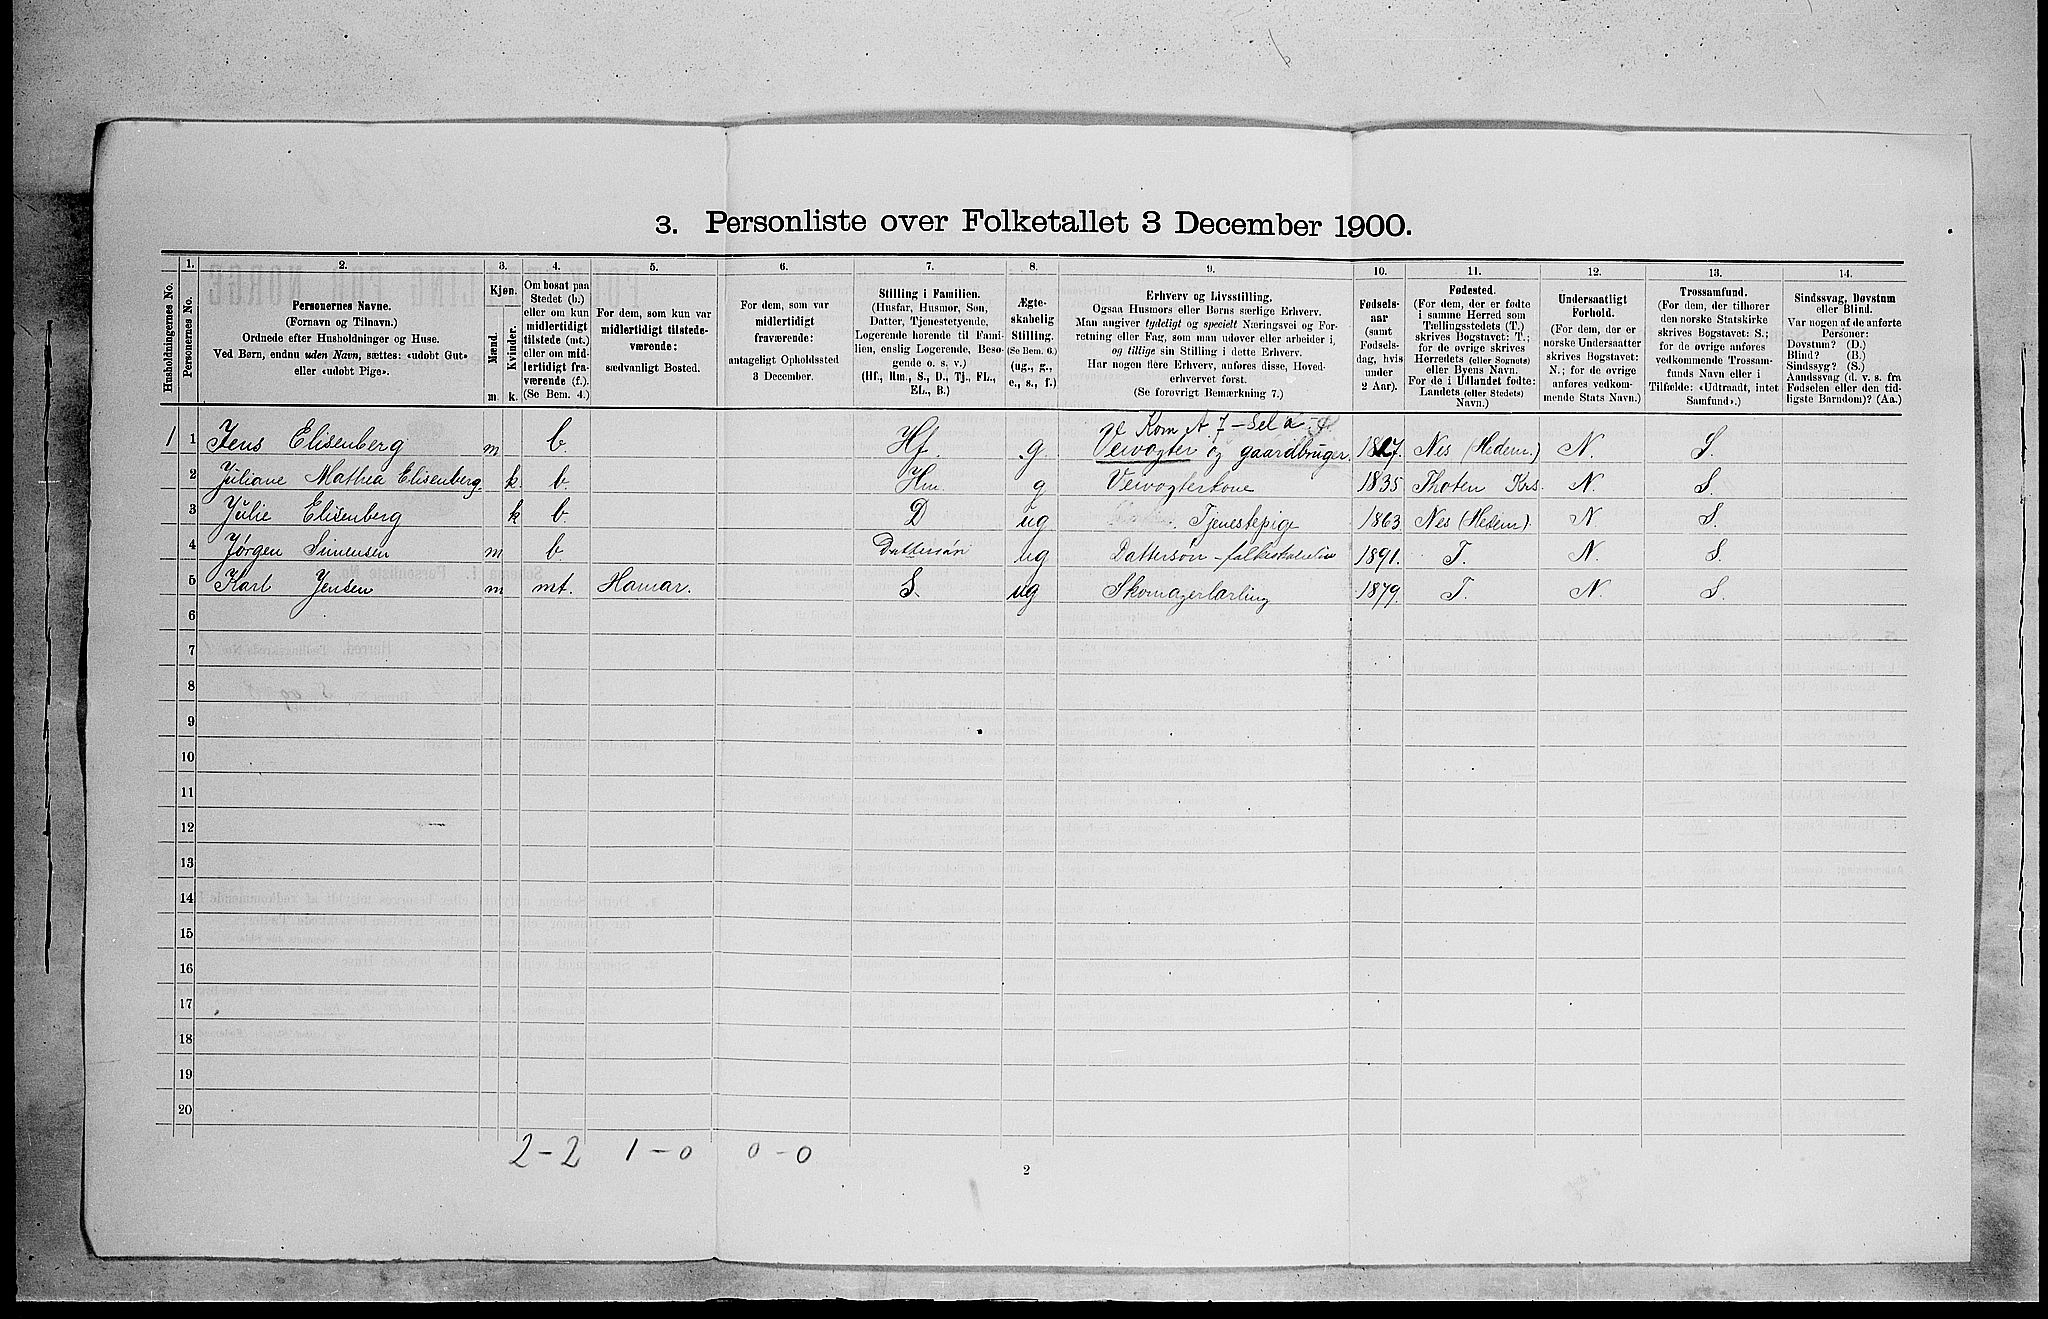 3. Personliste over Folketallet 3 December 1900.
1. 2. 3. 4. 5. 6. 7. 8. 9. 10. 11. 12. 13. 14.
Husholdningernes No.
Personernes No.
Personernes Navne.
(Fornavn og Tilnavn.)
Ordnede efter Husholdninger og Huse.
Ved Børn, endnu uden Navn, sættes: «udøbt Gut»
eller «udøbt Pige».
Kjøn.
Mænd.
Kvinder.
m. k.
Om bosat paa
Stedet (b.)
eller om kun
midlertidigt
tilstede (mt.)
eller om mid-
lertidigt fra-
værende (f.)
(Se Bem. 4.)
For dem, som kun var
midlertidigt tilstede-
værende:
sædvanligt Bosted.
For dem, som var
midlertidigt
fraværende:
antageligt Opholdssted
3 December.
Stilling i Familien.
(Husfar, Husmor, Søn,
Datter, Tjenestetyende,
Logerende hørende til Fami-
lien, enslig Logerende, Besø-
gende o. s. v.)
(Hf., Hm., S., D., Tj., FL.,
EL., B.)
Ægte-
skabelig
Stilling.
(Se Bem. 6.)
(ug., g.,
e., s., f.)
Erhverv og Livsstilling.
Ogsaa Husmors eller Børns særlige Erhverv.
Man angiver tydeligt og specielt Næringsvei og For-
retning eller Fag, som man udøver eller arbeider i,
og tillige sin Stilling i dette Erhverv.
Har nogen flere Erhverv, anføres disse, Hoved-
erhvervet først.
(Se forøvrigt Bemærkning 7.)
Fødsels-
aar
(samt
Fødsels-
dag, hvis
under
2 Aar).
Fødested.
(For dem, der er fødte
i samme Herred som
Tællingsstedets (T.)
skrives Bogstavet: T.;
for de øvrige skrives
Herredets (eller Sognets)
eller Byens Navn.
For de i Udlandet fødte:
Landets (eller Stedets)
Navn.)
Undersaatligt
Forhold.
(For dem, der er
norske Undersaatter
skrives Bogstavet:
N.; for de øvrige
anføres vedkom-
mende Stats Navn.)
Trossamfund.
(For dem, der tilhører
den norske Statskirke
skrives Bogstavet: S.;
for de øvrige anføres
vedkommende Trossam-
funds Navn eller i
Tilfælde: «Udtraadt, intet
Samfund».)
Sindssvag, Døvstum
eller Blind.
Var nogen af de anførte
Personer:
Døvstum? (D.)
Blind? (B.)
Sindssyg? (S.)
Aandssvag (d. v. s. fra
Fødselen eller den tid-
ligste Barndom)? (Aa.)
Kom A 7 – Sel a
1 1 Jens Elisenberg m b. Hf. g Veivogter og gaardbruger. Nes (Hedem.) N. S.
2 Juliane Mathea Elisenberg. k b. Hm. g Veivogterkone 1835 Thoten Krs. N. S.
3 Julie Elisenberg k b. D ug Tjenestepige 1863 Nes (Hedem) N. S.
4 Jørgen Simensen m b Dattersøn ug Dattersøn – 1891. T. N. S.
5 Karl Jensen m mt. Hamar. S. ug Skomagerlærling 1879. T. N. S.
6
7
8
9
10
11
12
13
14
15
16
17
18
19
20
2-2 1-0 0-0
2